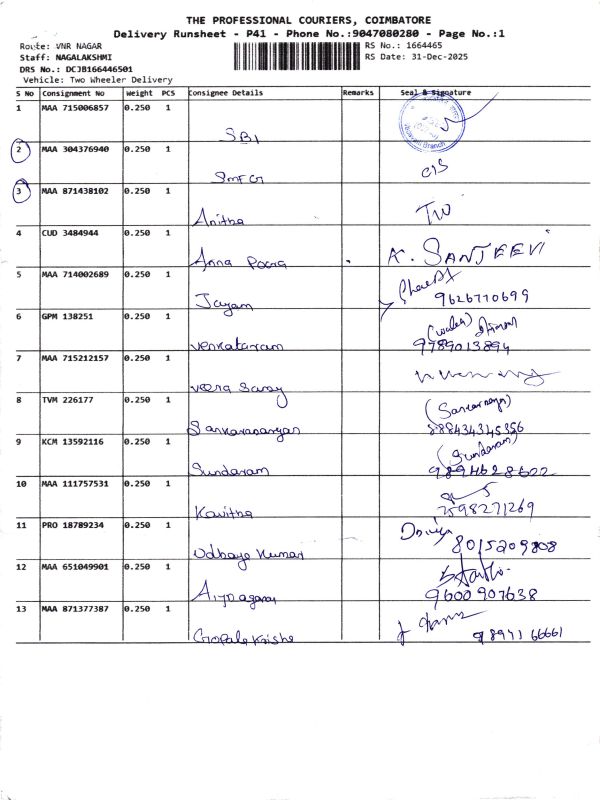 THE PROFESSIONAL COURIERS, COIMBATORE
Delivery Runsheet - P41 - Phone No.:9047080280 - Page No.:1
Route: VNR NAGAR
RS No.: 1664465
Staff: NAGALAKSHMI
RS Date: 31-Dec-2025
DRS No.: DCJB166446501
Vehicle: Two Wheeler Delivery
S No Consignment No Weight PCS Consignee Details Remarks Seal & Signature
1 MAA 715006857 0.250 1 SBI
Branch
2 MAA 304376940 0.250 1 SMFG
3 MAA 871438102 0.250 1 Anitha
4 CUD 3484944 0.250 1 Anna Poorna K. SANJEEVI
5 MAA 714002689 0.250 1 Jayam
9626710699
6 GPM 138251 0.250 1 Venkataram
9789013894
7 MAA 715212157 0.250 1 Veera Saray
8 TVM 226177 0.250 1 Sankaranarayan
9 KCM 13592116 0.250 1 Sundaram (Sundaram)
10 MAA 111757531 0.250 1 Kavitha
7598271269
11 PRO 18789234 0.250 1 Udhaya Kumar
8015209808
12 MAA 651049901 0.250 1
9600907638
13 MAA 871377387 0.250 1 Gopala Krishn